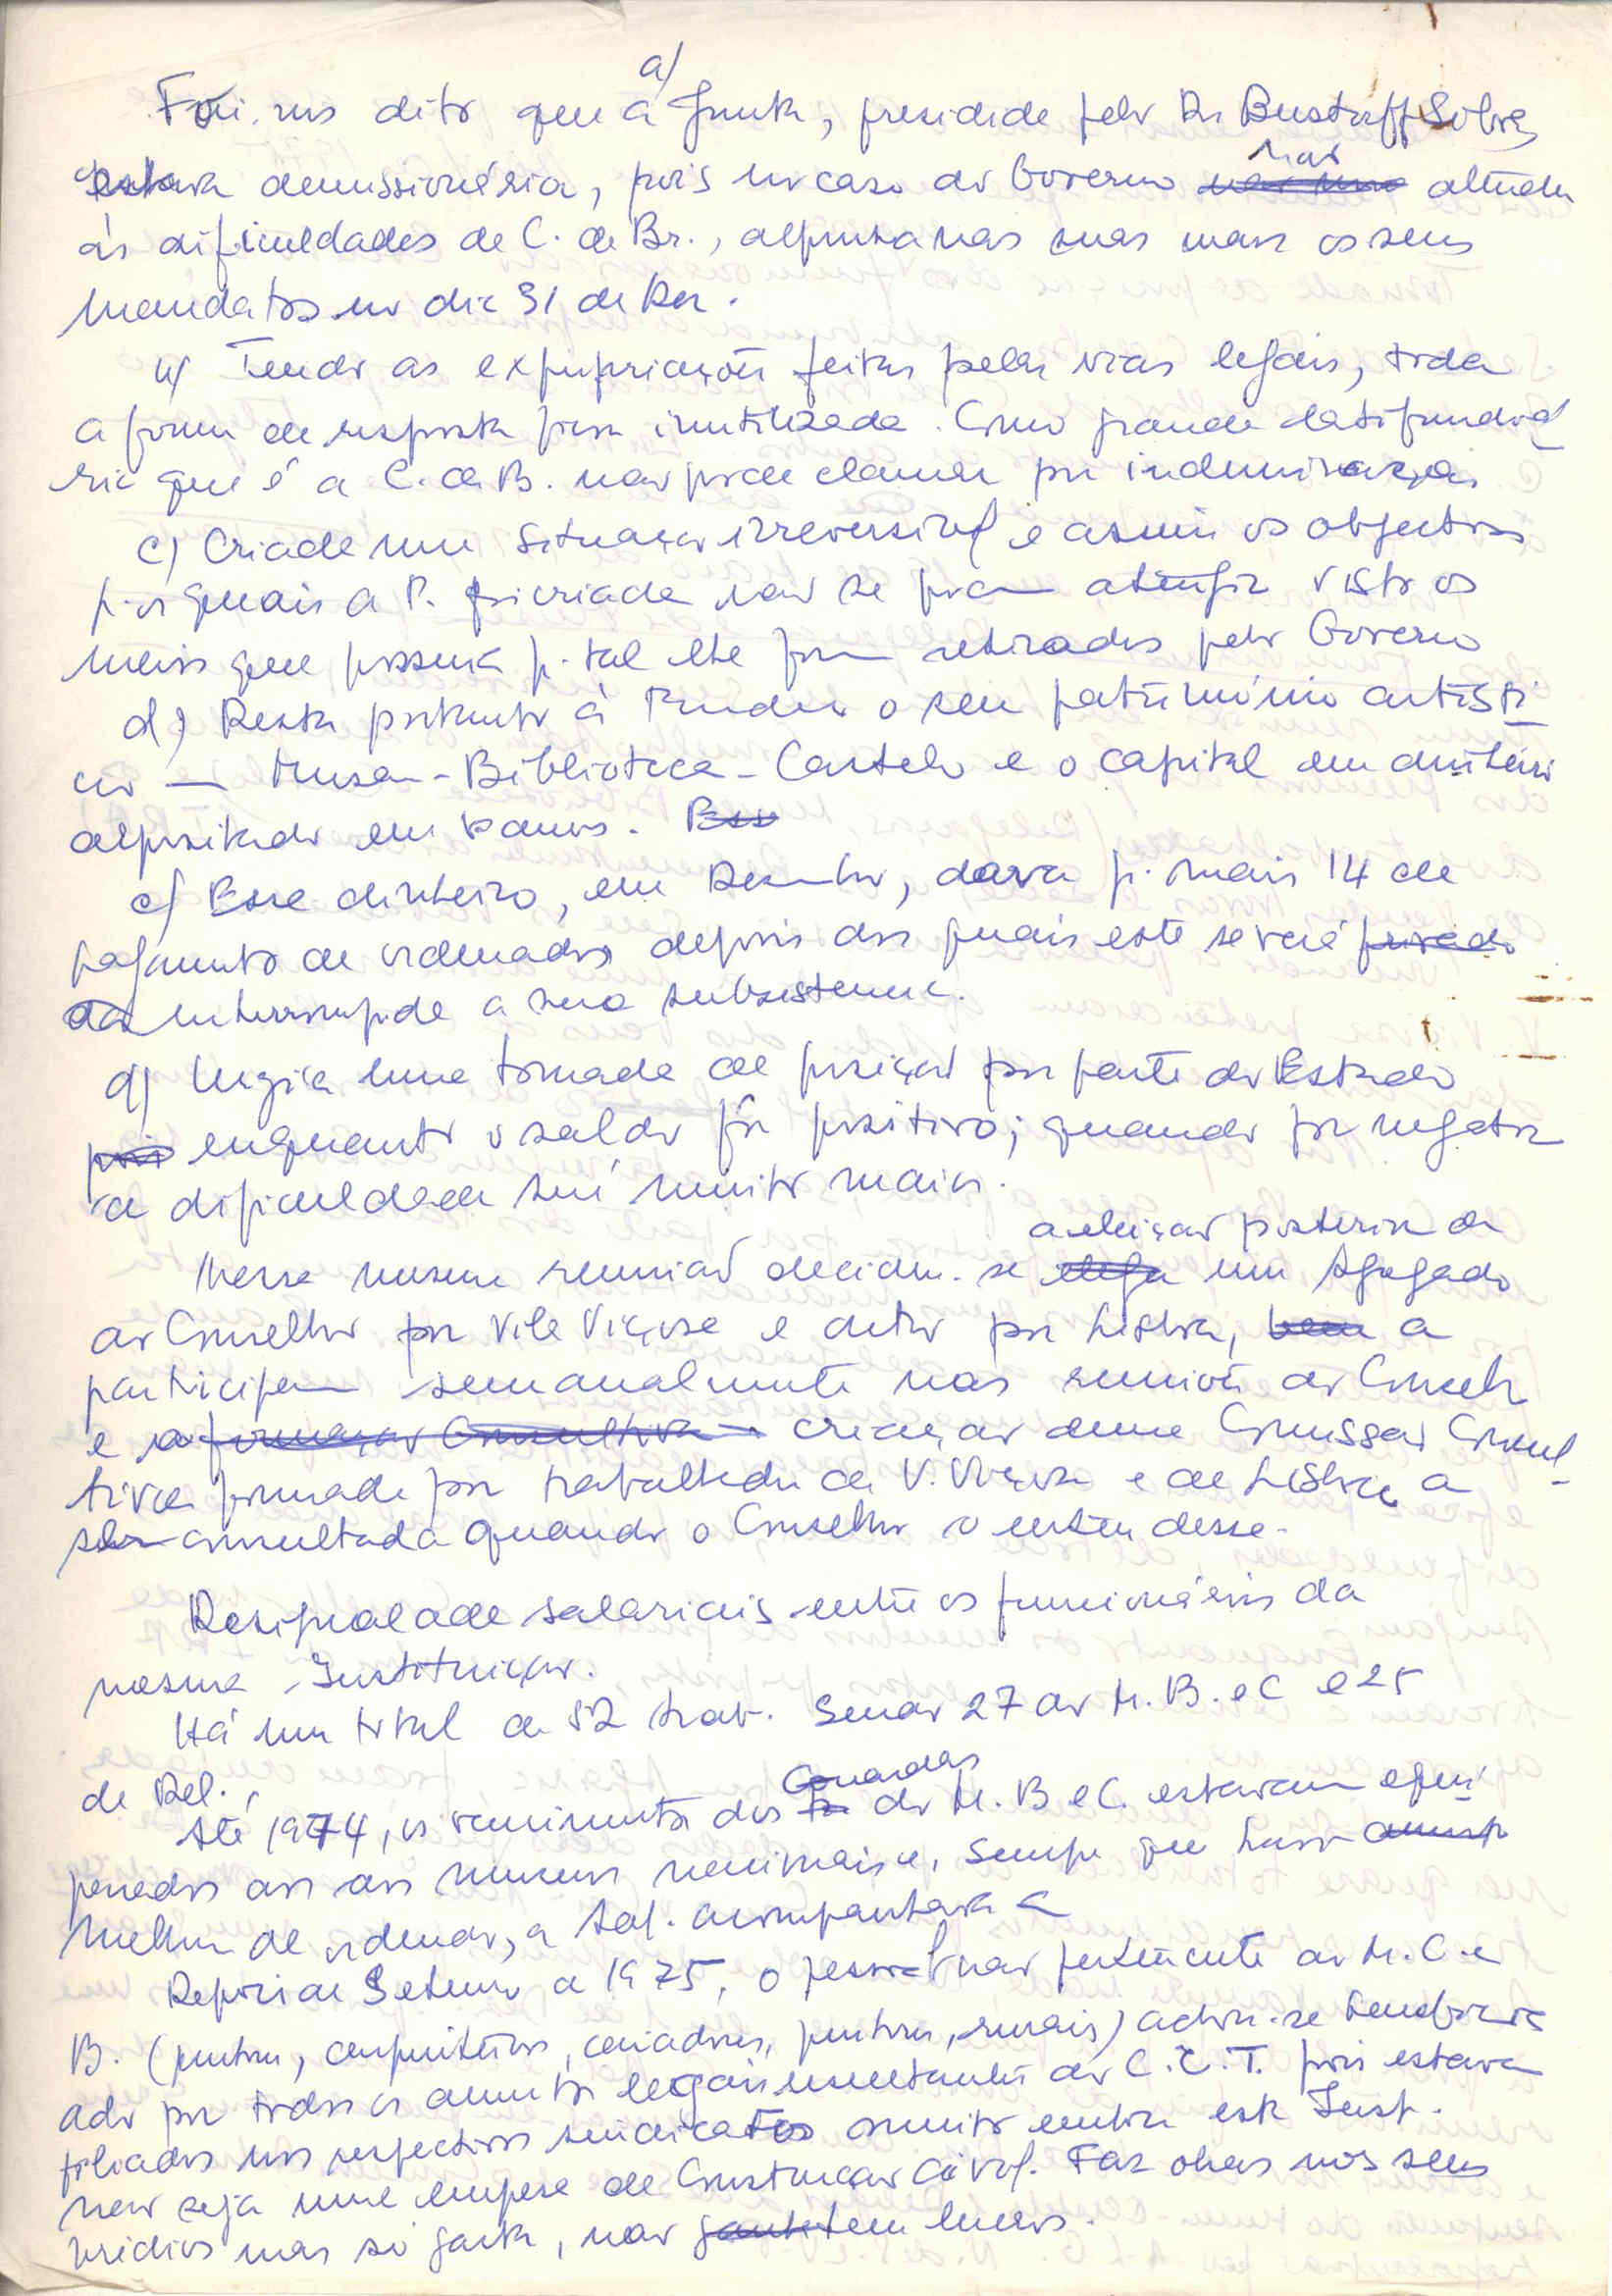 a)
Foi-nos dito que a Junta, presidida pelo Dr Bustorff Silva,
estava demissionária, pois no caso do Governo não atender
às dificuldades da C. de Br., depunha nas suas mãos os seus
mandatos no dia 31 de Dez.
b) Tendo as expropriações feitas pelas vias legais, toda
a forma de resposta fica inutilizada. Como grande latifundiá
ria que é a C. de B. não pode clamar por indemnização
c) Criada uma situação irreversível e assim os objectivos
p. os quais a F. foi criada não se podem atingir visto os
meios que possuía p. tal lhe foram retirados pelo Governo
d) Resta portanto à Fundação o seu património artísti
co — Museu - Biblioteca - Castelo e o capital em dinheiro
depositado em bancos. Ess
e) Esse dinheiro, em Dezembro, dava p. mais 14 de
pagamento de ordenados depois dos quais este se verá
interrompida a sua subsistência.
d) Urgia uma tomada de posição por parte do Estado
pois enquanto o saldo fôr positivo; quando for negativo
a dificuldade será muito maior.
a eleição posterior de
Nessa mesma reunião decidiu-se um Agregado
ao Conselho por Vila Viçosa e outro por Lisboa, bem a
participarem semanalmente nas reuniões do Conselho
e a formação Consultiva criação duma Comissão Consul
tiva formada por trabalhadores de V. Viçosa e de Lisboa a
ser consultada quando o Conselho o entendesse.
Desigualdade salariais entre os funcionários da
mesma Instituição.
Há um total de 52 trab. Senão 27 do M. B. e C e 25
de Del.,
Até 1974, os vencimentos dos Guardas do M. B e C. estavam equi
parados aos dos museus nacionais e, sempre que havia
melhoria de ordenado, a acompanhava a
Depois de Setembro de 1975, o pessoal não pertencente ao M. C. e
B. (pintores, carpinteiros, criadores, pintores, rurais) achou-se
ado por todos os aumentos legais resultantes do C. C. T. pois estavam
filiados nos respectivos sindicatos muito embora esta Inst.
não seja uma empresa de Construção Civil. Faz obras nos seus
prédios mas só gasta, não tem lucros.